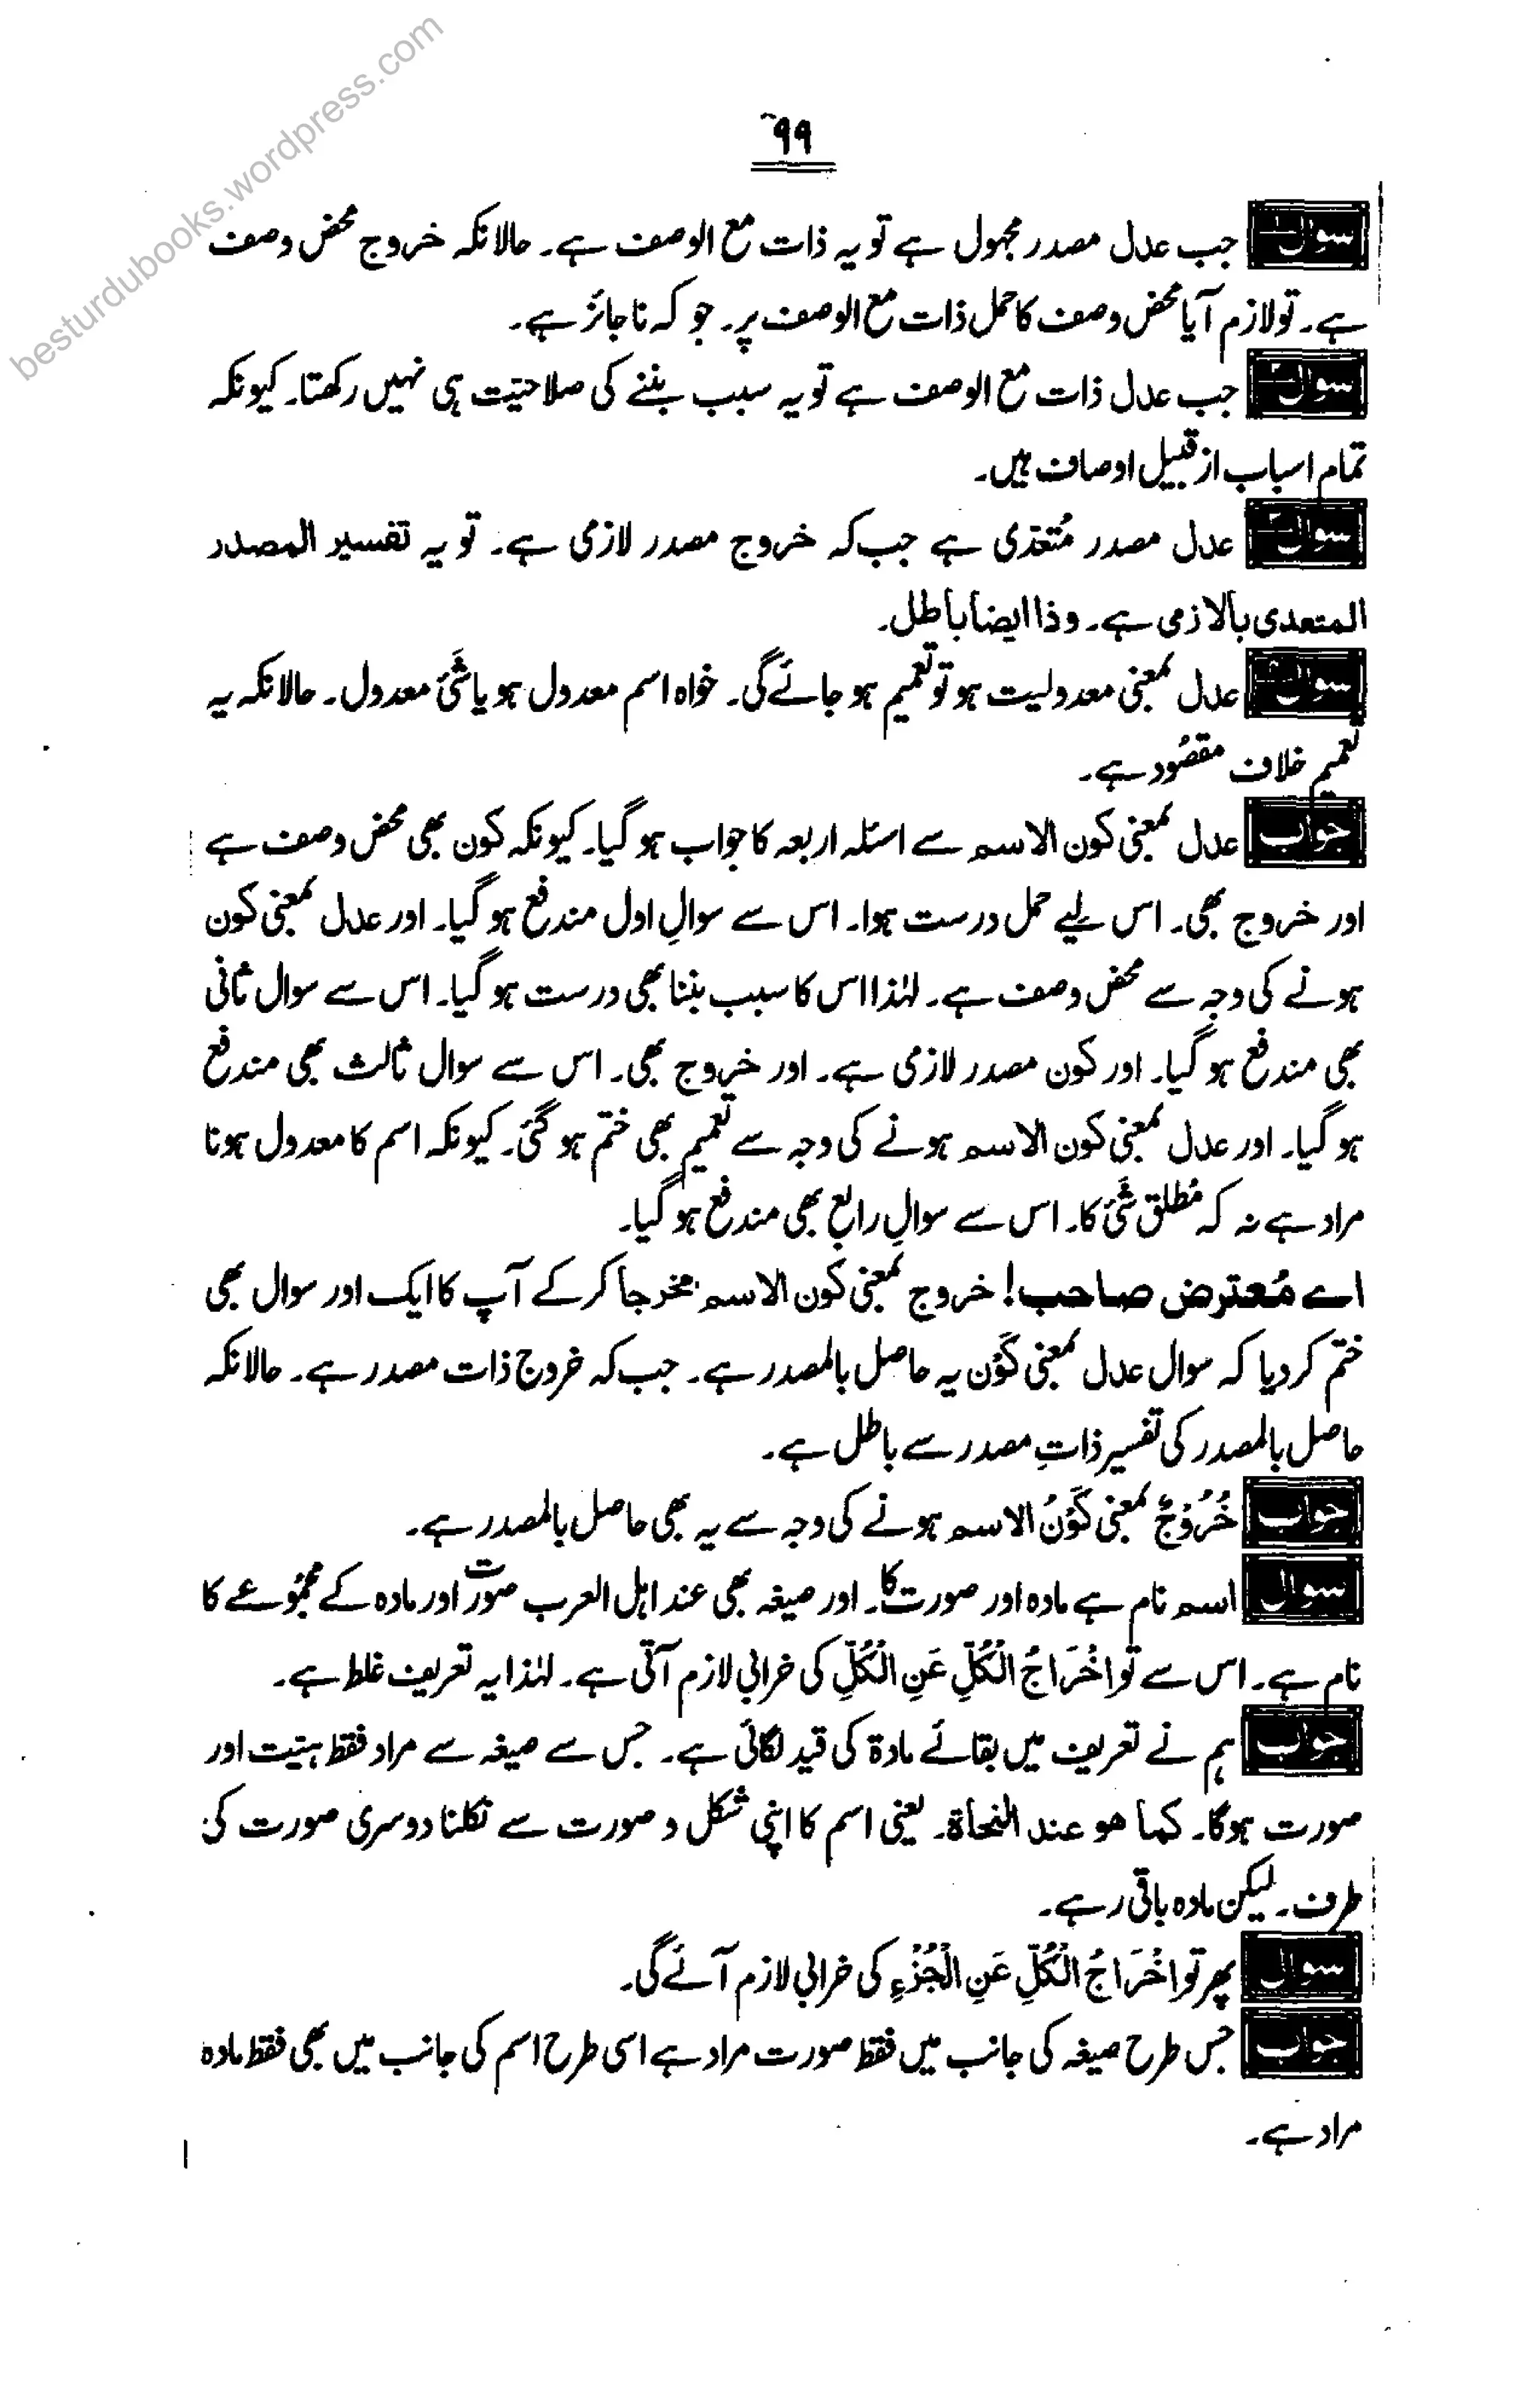 besturdubooks.wordpress.com
۹۹
سوال جب عدل مصدر مجہول ہے تو یہ ذات مع الوصف ہے۔ حالانکہ خروج محض وصف
ہے۔ تو لازم آیا محض وصف کا حمل ذات مع الوصف پر۔ جو کہ ناجائز ہے۔
سوال جب عدل ذات مع الوصف ہے تو یہ سبب بننے کی صلاحیت ہی نہیں رکھتا۔ کیونکہ
تمام اسباب از قبیل اوصاف ہیں۔
سوال عدل مصدر مُتعدّی ہے جب کہ خروج مصدر لازمی ہے۔ تو یہ تفسیر المصدر
المتعدی بالازمی ہے۔ وذا ایضاً باطل۔
سوال عدل بمعنی معدولیت ہو تو تعمیم ہو جائے گی۔ خواہ اسم معدول ہو یا شَیْ معدول۔ حالانکہ یہ
تعمیم خلاف مقصُود ہے۔
جواب عدل بمعنی کون الاسم سے اسئلہ اربعہ کا جواب ہو گیا۔ کیونکہ کون بھی محض وصف ہے
اور خروج بھی۔ اس لیے حمل درست ہوا۔ اس سے سوالِ اول مندفع ہو گیا۔ اور عدل بمعنی کون
ہونے کی وجہ سے محض وصف ہے۔ لہٰذا اس کا سبب بننا بھی درست ہو گیا۔ اس سے سوال ثانی
بھی مندفع ہو گیا۔ اور کون مصدر لازمی ہے۔ اور خروج بھی۔ اس سے سوال ثالث بھی مندفع
ہو گیا۔ اور عدل بمعنی کون الاسم ہونے کی وجہ سے تعمیم بھی ختم ہو گئی۔ کیونکہ اسم کا معدول ہونا
مراد ہے نہ کہ مُطلق شَیْ کا۔ اس سے سوالِ رابع بھی مندفع ہو گیا۔
اے مُعترض صاحب! خروج بمعنی کون الاسم مخرجا کر کے آپ کا ایک اور سوال بھی
ختم کر دیا کہ سوال عدل بمعنی کَوْن یہ حاصل بالمصدر ہے۔ جب کہ خروج ذات مصدر ہے۔ حالانکہ
حاصل بالمصدر کی تفسیر ذاتِ مصدر سے باطل ہے۔
جواب خُرُوْجٌ بمعنی کَوْنُ الاسم ہونے کی وجہ سے یہ بھی حاصل بالمصدر ہے۔
سوال اسم نام ہے مادہ اور صورت کا۔ اور صیغہ بھی عند اہل العرب صورت اور مادہ کے مجمُوعے کا
نام ہے۔ اس سے تو اِخْرَاجُ الْکُلِّ عَنِ الْکُلِّ کی خرابی لازم آتی ہے۔ لہٰذا یہ تعریف غلط ہے۔
جواب ہم نے تعریف میں بقائے مادۃ کی قید لگائی ہے۔ جس سے صیغہ سے مراد فقط ہیئت اور
صورت ہوگا۔ کما ھو عند النحاۃ۔ یعنی اسم کا اپنی شکل و صورت سے نکلنا دوسری صورت کی
طرف۔ لیکن مادہ باقی رہے۔
سوال پھر تو اِخْرَاجُ الْکُلِّ عَنِ الْجُزْءِ کی خرابی لازم آئے گی۔
جواب جس طرح صیغہ کی جانب میں فقط صورت مراد ہے اسی طرح اسم کی جانب میں بھی فقط مادہ
مراد ہے۔